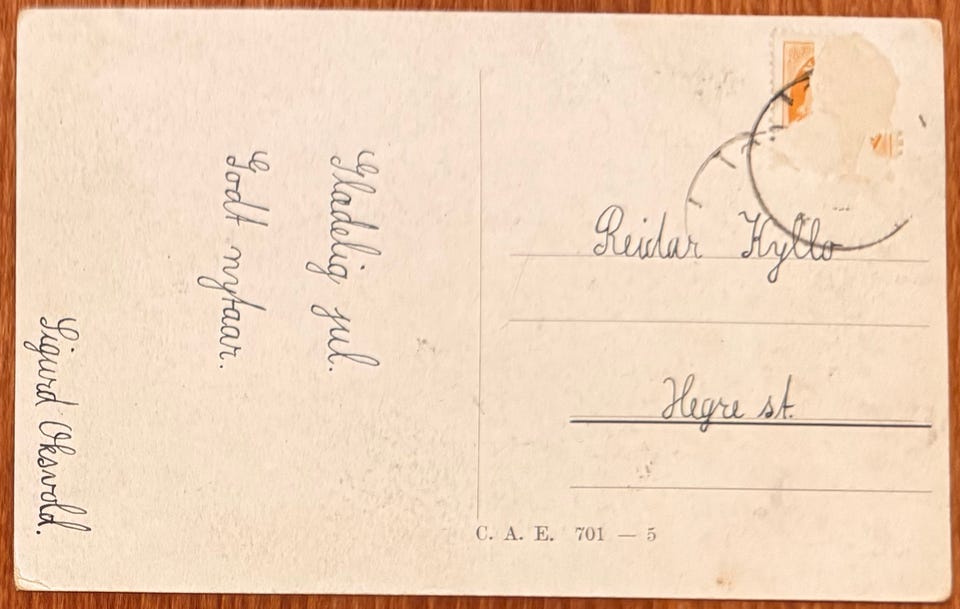 Gladelig jul.
Godt nytaar.
Sigurd Oksvold.
Reidar Hyllo
Hegre st.
C. A. E. 701 — 5